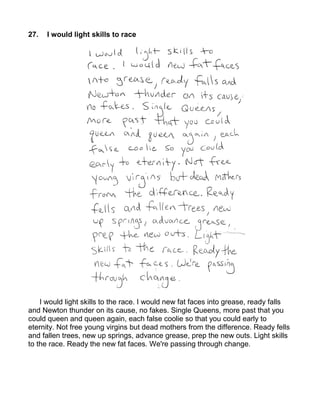 27. I would light skills to race
I would light skills to
race. I would new fat faces
into grease, ready falls and
Newton thunder on its cause,
no fakes. Single Queens,
more past that you could
queen and queen again, each
false coolie so you could
early to eternity. Not free
young virgins but dead mothers
from the difference. Ready
fells and fallen trees, new
up springs, advance grease,
prep the new outs. Light
skills to the race. Ready the
new fat faces. We're passing
through change.
I would light skills to the race. I would new fat faces into grease, ready falls
and Newton thunder on its cause, no fakes. Single Queens, more past that you
could queen and queen again, each false coolie so that you could early to
eternity. Not free young virgins but dead mothers from the difference. Ready fells
and fallen trees, new up springs, advance grease, prep the new outs. Light skills
to the race. Ready the new fat faces. We're passing through change.